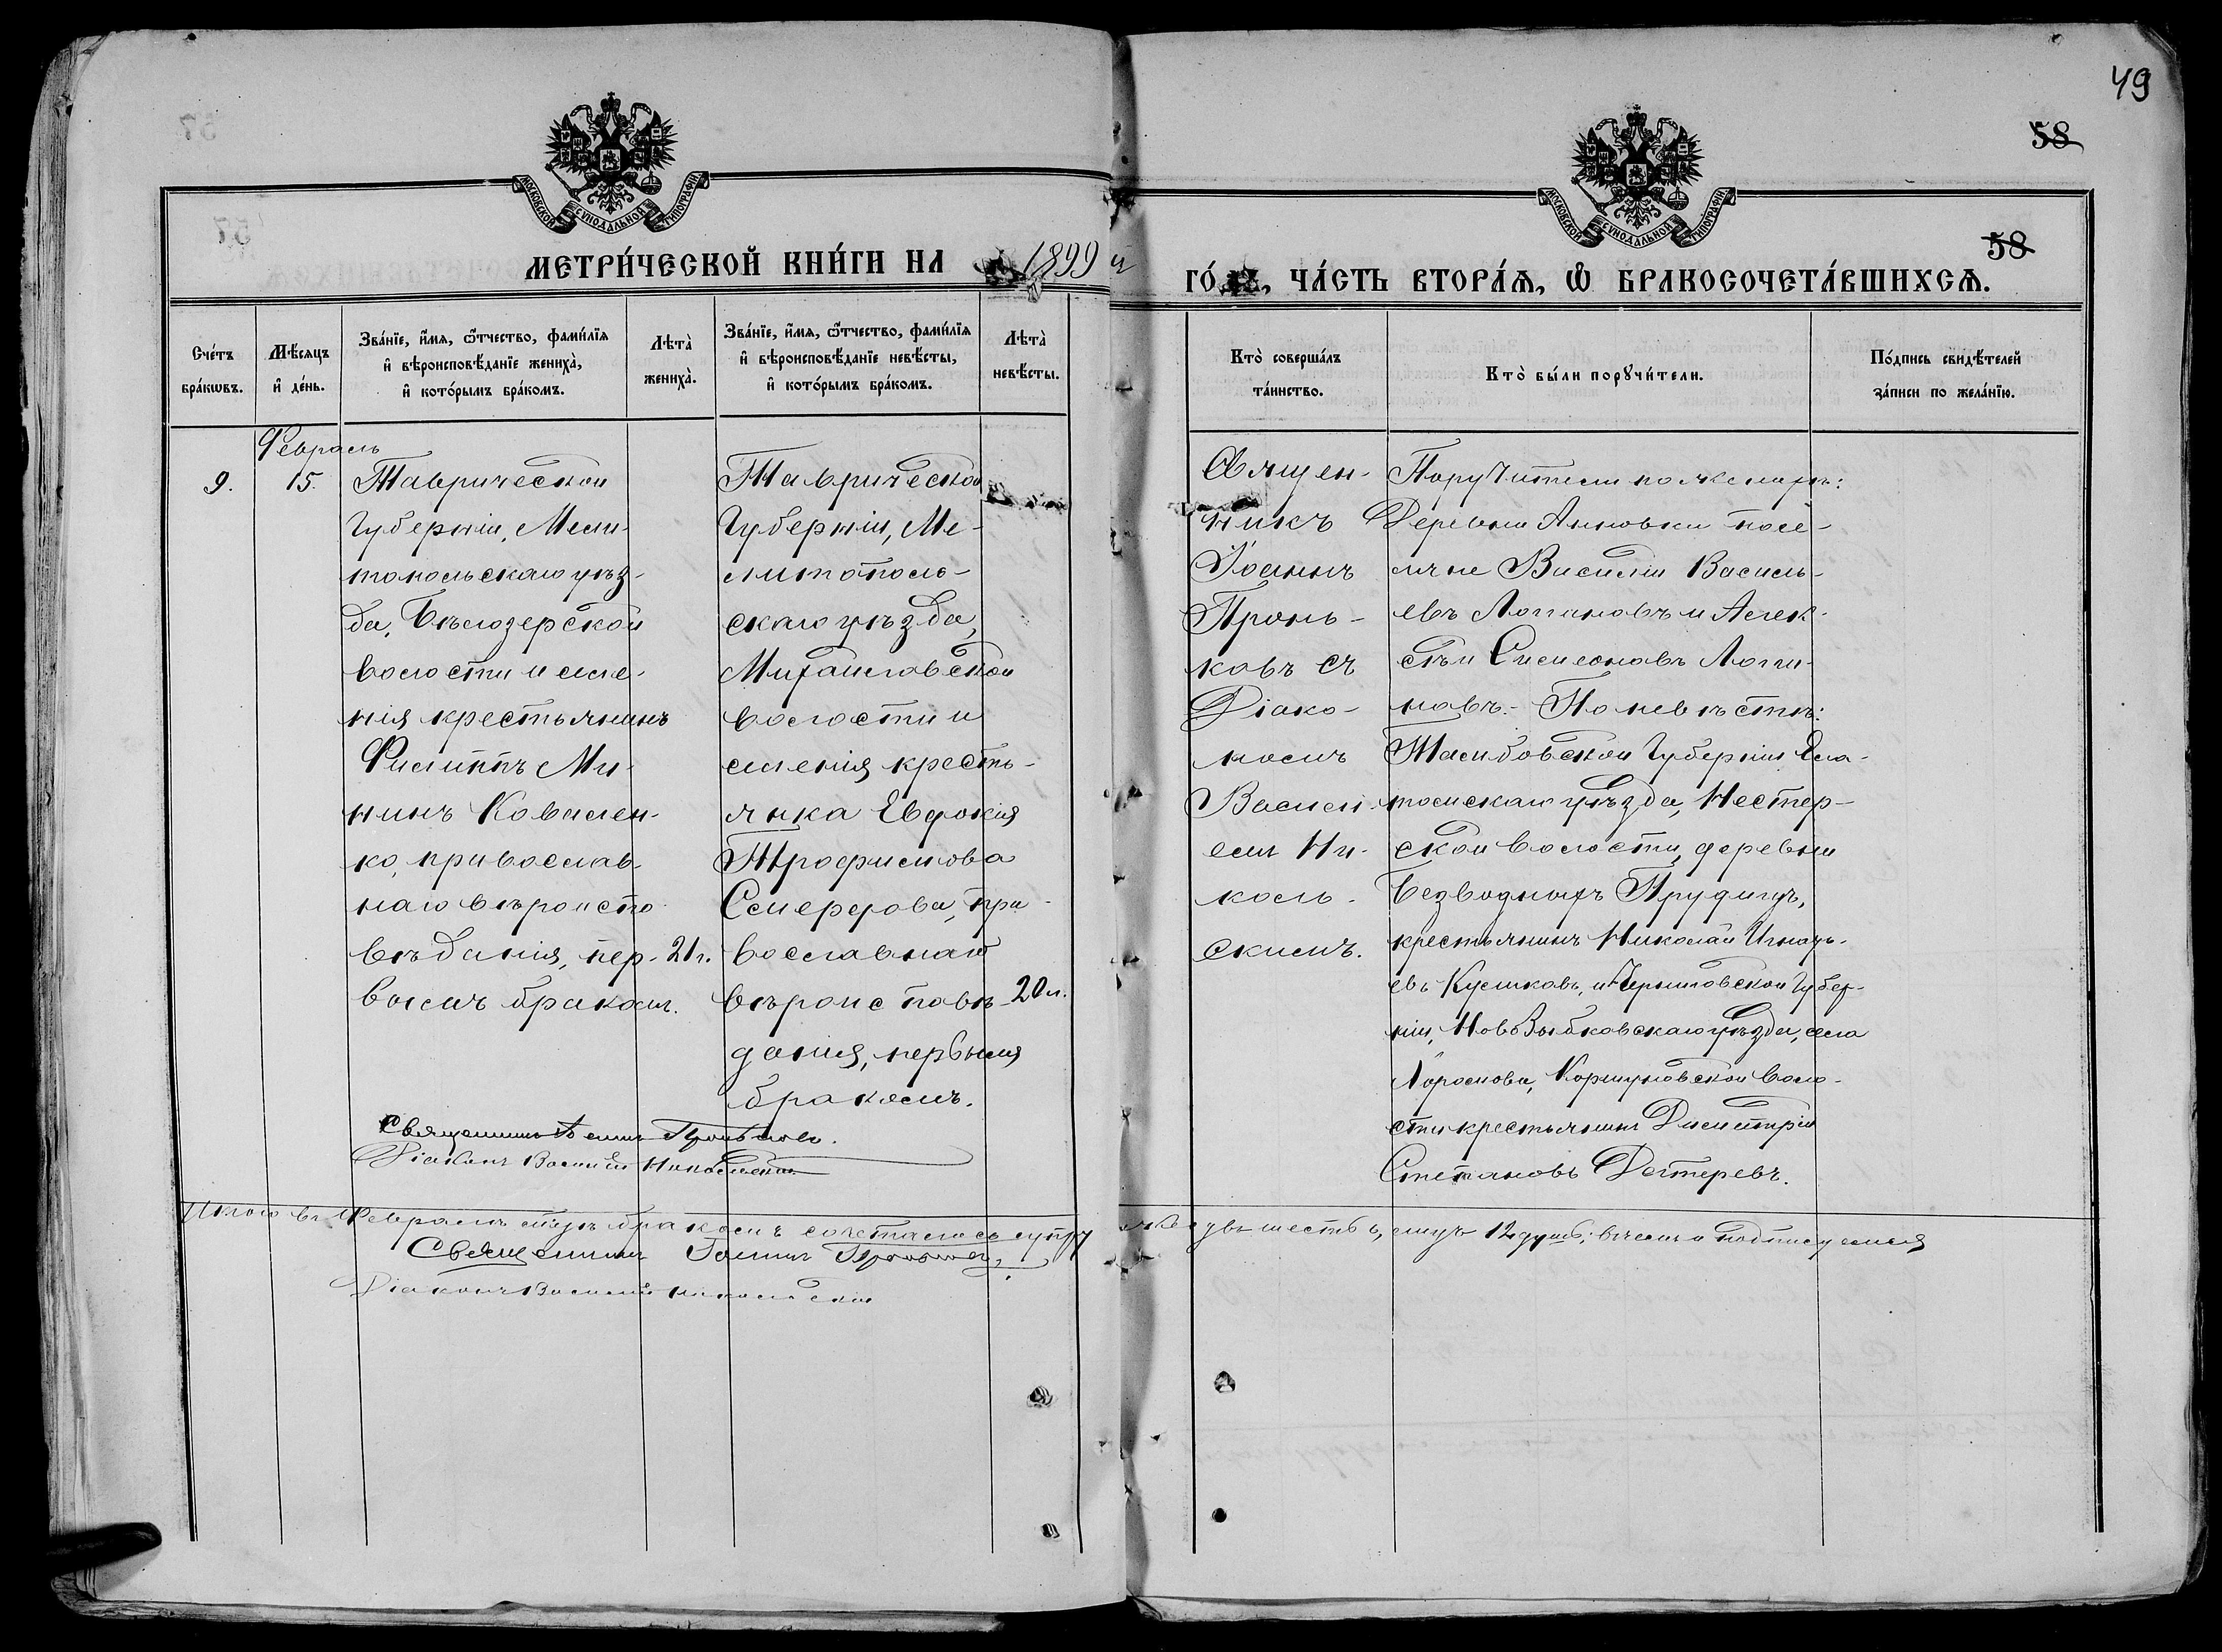 49
58
58
МОСКОВСКОЙ СѴНОДАЛЬНОЙ ТИПОГРАФІИ
МОСКОВСКОЙ СѴНОДАЛЬНОЙ ТИПОГРАФІИ
МЕТРИ́ЧЕСКОЙ КНИ́ГИ НА 1899 й
ГО́ , ЧА́СТЬ ВТОРА́Ѧ, Ѡ҆ БРАКОСОЧЕТА́ВШИХСѦ.
Сче́тъ
бра́кѡвъ.
Мѣ́сяцъ
и҆ де́нь.
Зва́нїе, и҆́мѧ, ѻ҆́тчество, фами́лїѧ
и҆ вѣроисповѣ́данїе жениха̀,
и҆ кото́рымъ бра́комъ.
Лѣта̀
жениха̀.
Зва́нїе, и҆́мѧ, ѻ҆́тчество, фами́лїѧ
и҆ вѣроисповѣ́данїе невѣ́сты,
и҆ кото́рымъ бра́комъ.
Лѣта̀
невѣ́сты.
Кто̀ соверша́лъ
та́инство.
Кто̀ бы́ли порꙋчи́тели.
По́дпись свидѣ́телей
за́писи по жела́нїю.
Февраль
9.
15.
Таврической
Губерніи, Мели-
топольскаго уѣз-
да, Бѣлозерской
волости и селе-
нія крестьянинъ
Филиппъ Ми-
нинъ Ковален-
ко, православ
наго вѣроиспо-
вѣданія, пер-
вымъ бракомъ.
21 г.
Таврической
Губерніи, Ме-
литополь-
скаго уѣзда,
Михайловской
волости и
селенія кресть-
янка Евдокія
Трофимова
Семерерова, пра-
вославнаго
вѣроисповѣ-
данія, первымъ
бракомъ.
20 л.
Священ-
никъ
Іоаннъ
Пронь-
ковъ съ
Діако-
номъ
Васили-
емъ Ни-
коль-
скимъ.
Поручители по женихѣ:
Деревни Анновки посе-
ляне Василій Василь-
евъ Логиновъ и Алек-
сѣй Симеоновъ Логи-
новъ. - По невѣстѣ:
Тамбовской Губерніи Ела-
томскаго уѣзда, Нестер-
ской волости, деревни
Безводныхъ Прудищъ,
крестьянинъ Николай Игнать-
евъ Куликовъ, и Черниговской Губер-
ніи, НовоЗыбковскаго уѣзда, села
Коршуновской воло-
сти крестьянинъ Димитрій
Степановъ Дегтеревъ.
Священникъ Іоаннъ Проньковъ.
Діаконъ Василій Никольскій
Итого въ Февралѣ мѣсяцѣ бракомъ сочеталось супружествъ шесть 6, лицъ 12 душъ; въ чемъ и подписуемся
Священникъ Іоаннъ Проньковъ,
Діаконъ Василій Никольскій